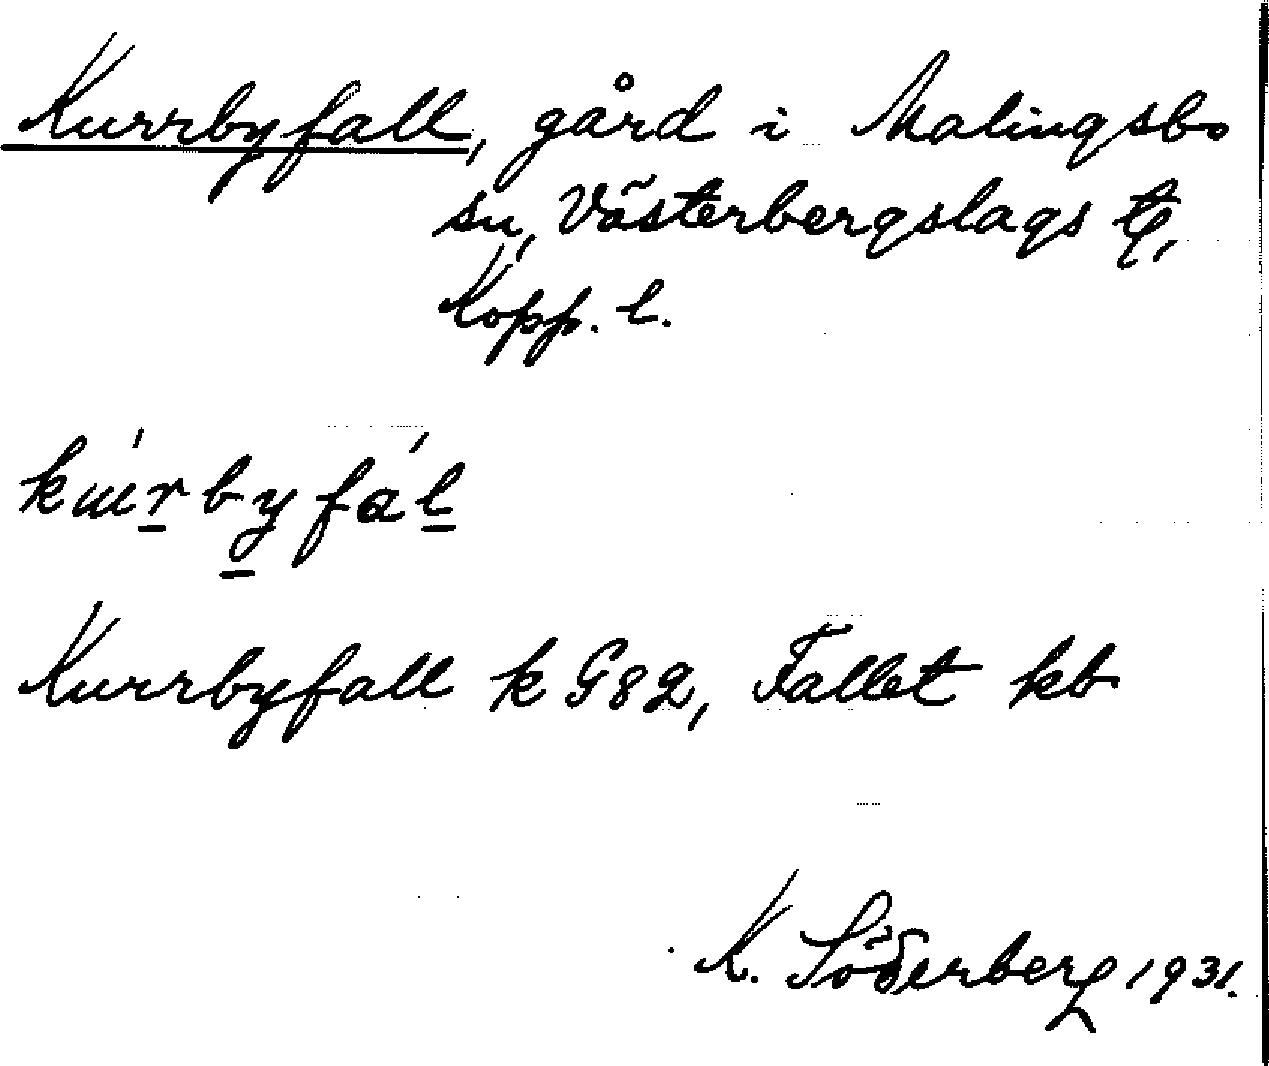 Kurrbyfall, gård i Malingsbo
sn, Västerbergslags tg,
Kopp. l.
Kurrbyfall k G82, Fallet kb
K. Söderberg 1931.